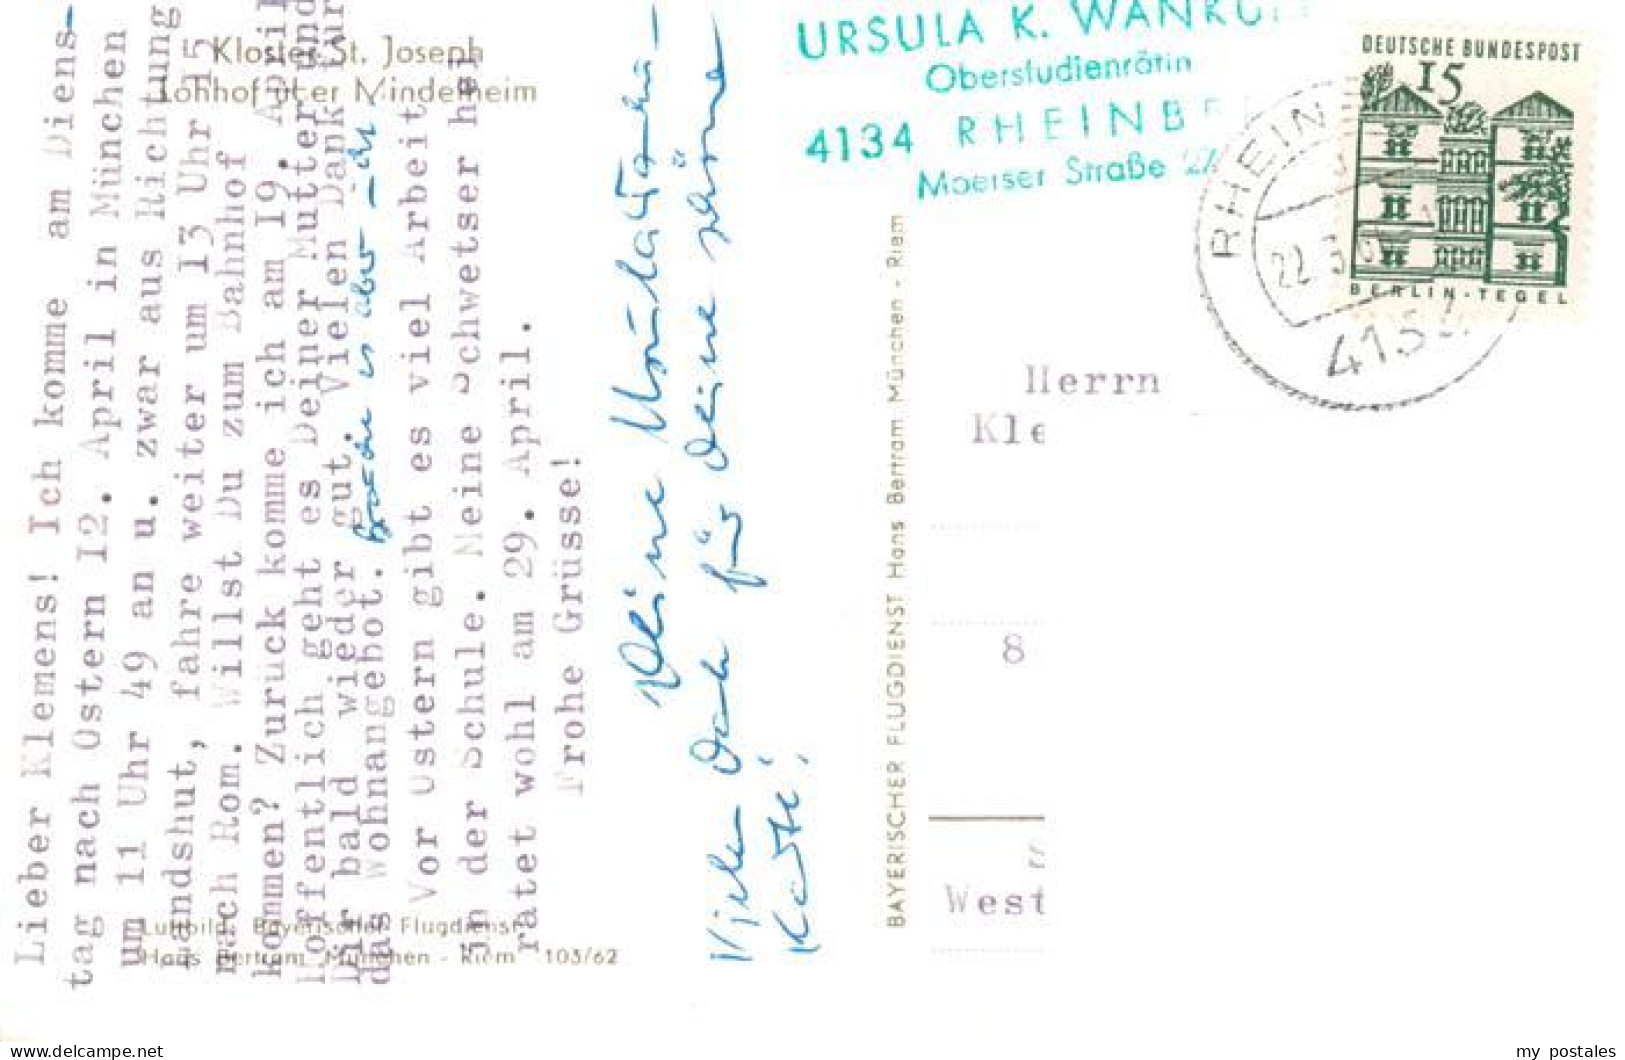 Kloster St. Joseph
Lohhof über Mindelheim
Lieber Klemens! Ich komme am Diens-
tag nach Ostern I2. April in München
um 11 Uhr 49 an u. zwar aus Richtung
Landshut, fahre weiter um I3 Uhr I5
nach Rom. Willst Du zum Bahnhof
kommen? Zurück komme ich am I9. April
Hoffentlich geht es Deiner Mutter und
Dir bald wieder gut. Vielen Dank für
das Wohnangebot.
Vor Ostern gibt es viel Arbeit
in der Schule. Meine Schwetser hei
ratet wohl am 29. April.
Frohe Grüsse!
Deine
Viele Dank für Deine schöne
Karte!
Luftbild: Bayerischer Flugdienst
Hans Bertram München - Riem 103/62
BAYERISCHER FLUGDIENST Hans Bertram München - Riem
URSULA K. WANKU
Oberstudienrätin
4134 RHEINBE
Moerser Straße
DEUTSCHE BUNDESPOST
15
BERLIN-TEGEL
RHEIN
22
413
Herrn
Kle
8
West
my postales
delcampe.net